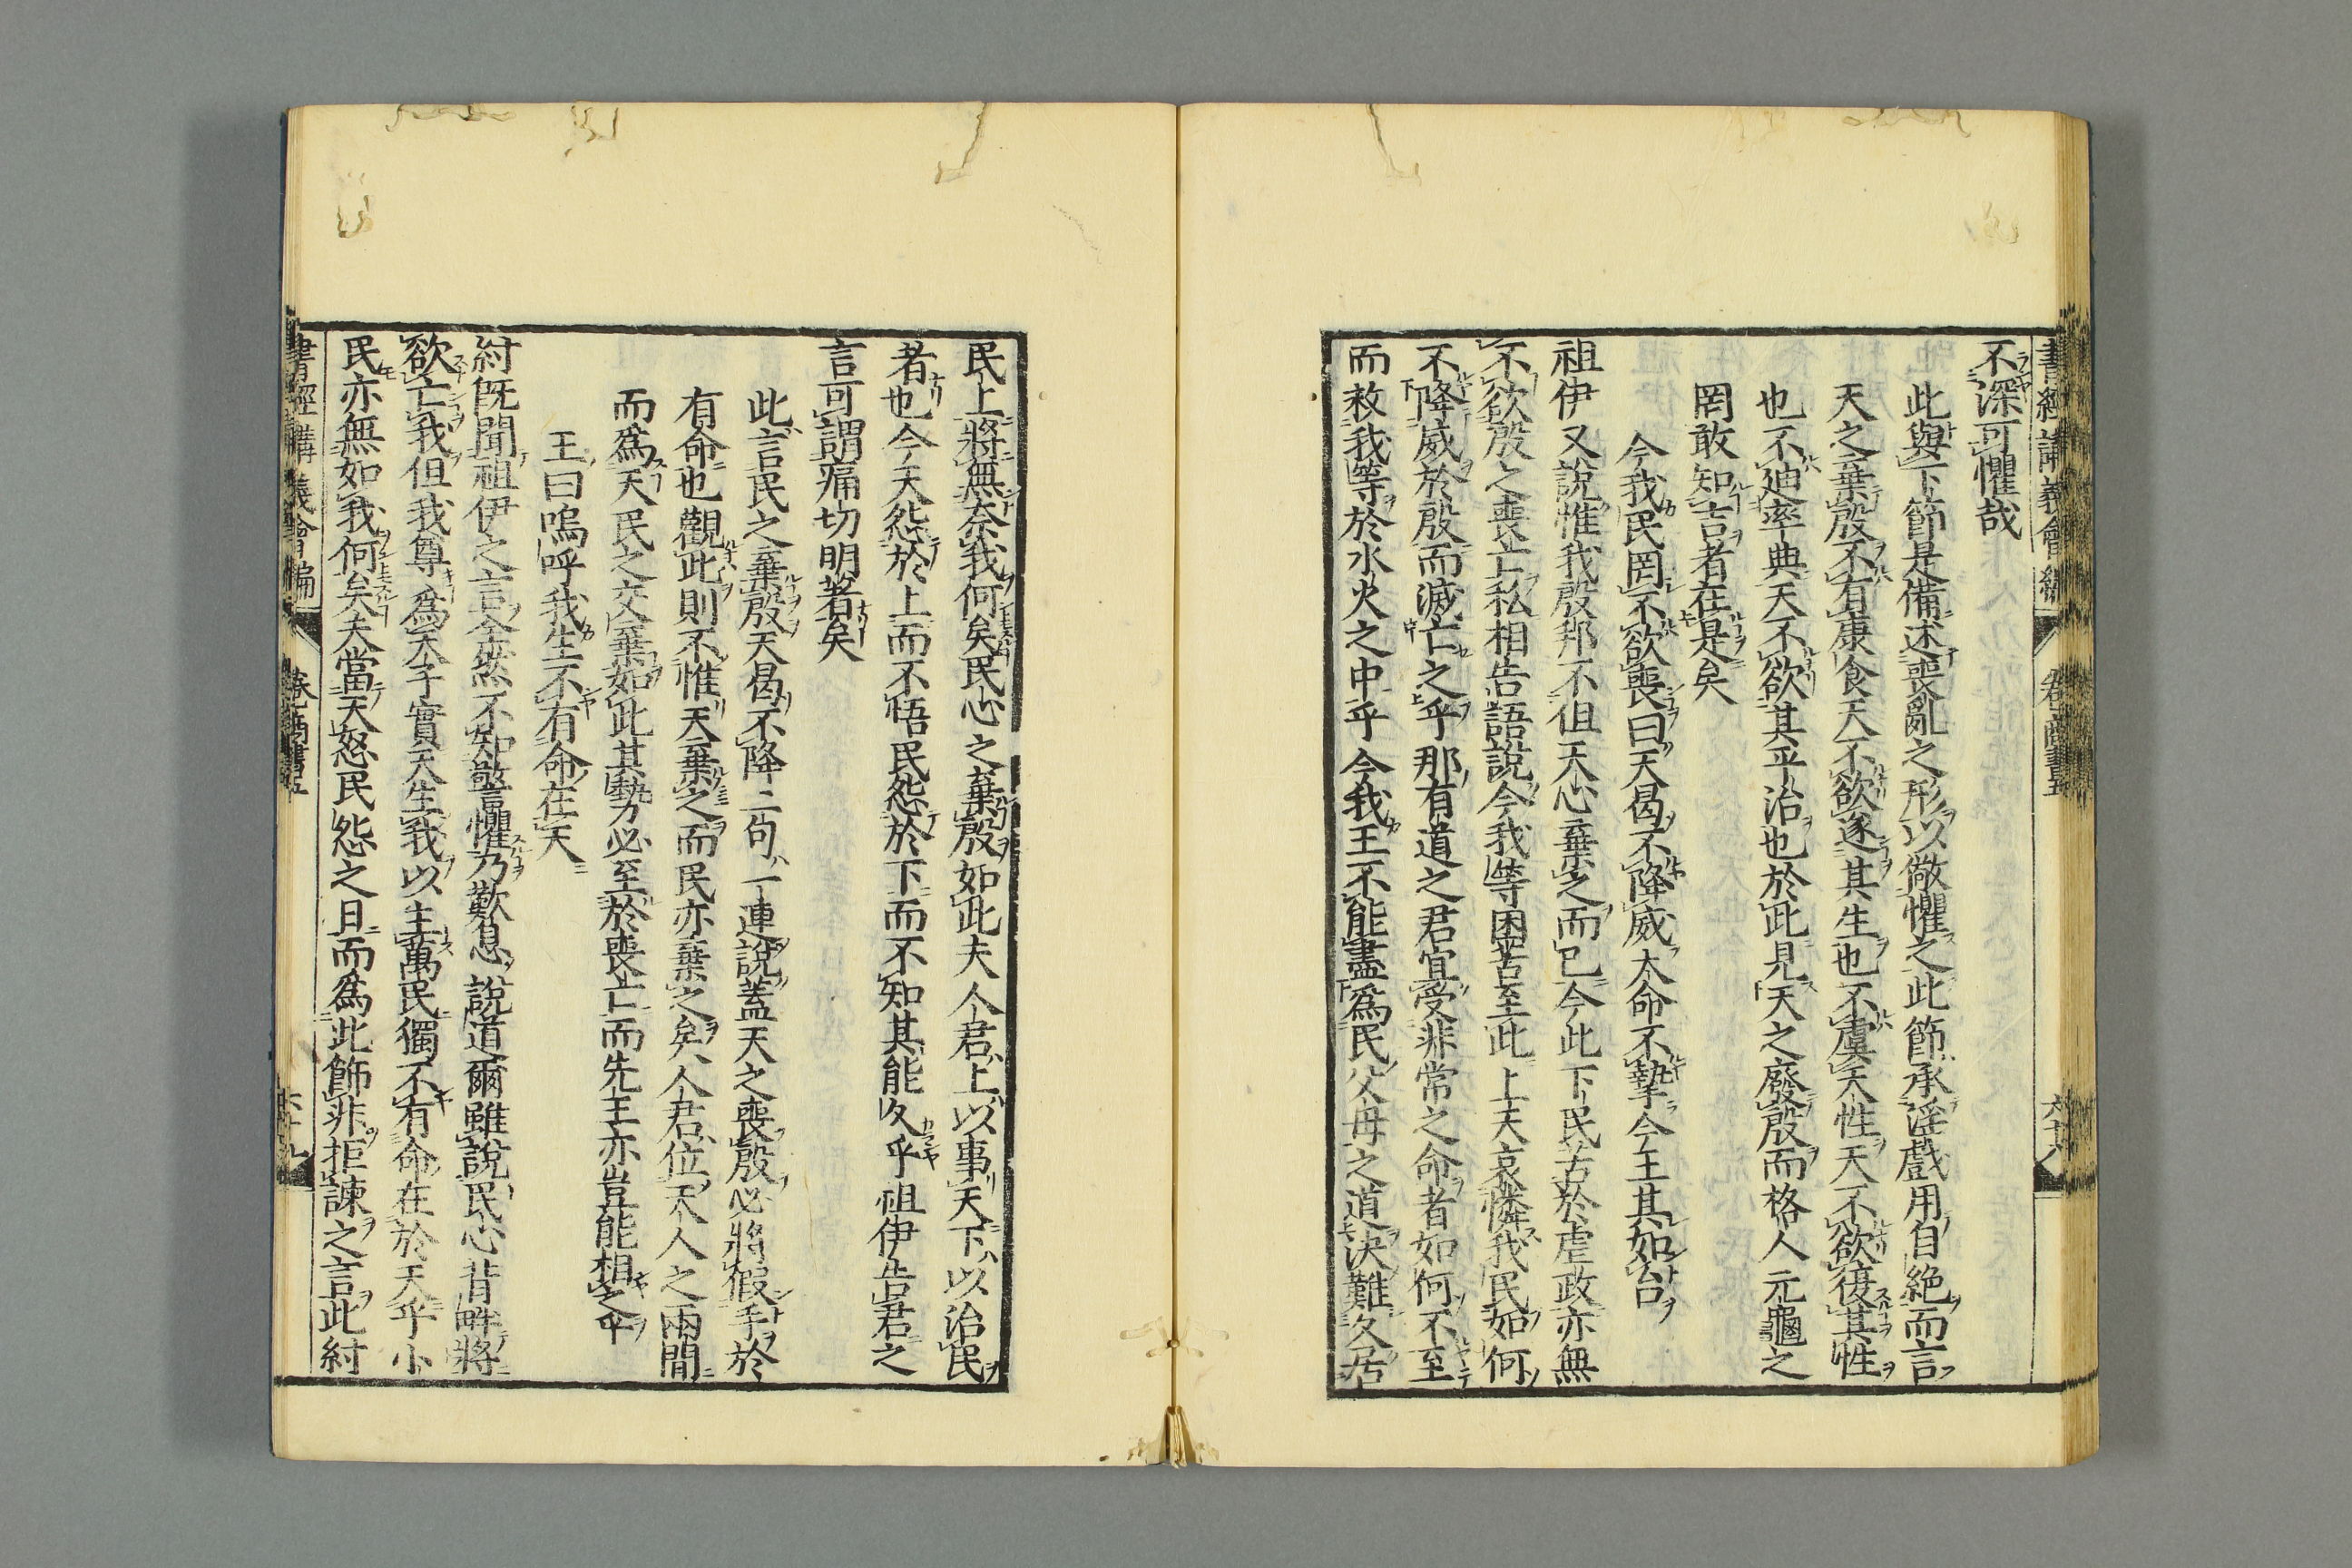 書經講義會編 卷 商書五 六十八
不深可懼哉
此與下節是備述喪亂之形以儆懼之此節承淫戲用自絕而言
天之棄殷不有康食天不欲遂其生也不虞天性天不欲復其性
也不廸率典天不欲其平治也於此見天之廢殷而格人元龜之
罔敢知吉者在是矣
今我民罔不欲喪曰天曷不降威大命不摯今王其如台
祖伊又說惟我殷邦不但天心棄之而已今此下民苦於虐政亦無
不欲殷之喪亡私相告語說今我等困苦至此上天哀憐我民如何
不降威於殷而滅亡之乎那有道之君宜受非常之命者如何不至
而救我等於水火之中乎今我王不能盡爲民父母之道決難久居
民上將無奈我何矣民心之棄殷如此夫人君上以事天下以治民
者也今天怨於上而不悟民怨於下而不知其能久乎祖伊告君之
言可謂痛切明著矣
此言民之棄殷天曷不降二句一連說蓋天之喪殷必將假手於
有命也觀此則不惟天棄之而民亦棄之矣人君位天人之兩間
而爲天民之交棄如此其勢力必至於喪亡而先王亦豈能相之乎
王曰嗚呼我生不有命在天
紂既聞祖伊之言全然不知警懼乃歎息說道爾雖說民心背畔將
欲亡我但我尊爲天子實天生我以主萬民獨不有命在於天乎小
民亦無如我何矣夫當天怒民怨之日而爲此飾非拒諫之言此紂
書經講義會編 卷 商書五 六十九